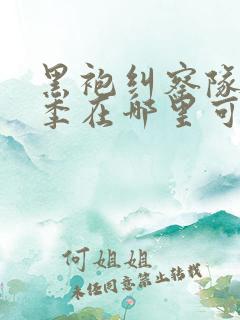 黑袍纠察队
季在哪里可
何姐姐
未经同意禁止转载